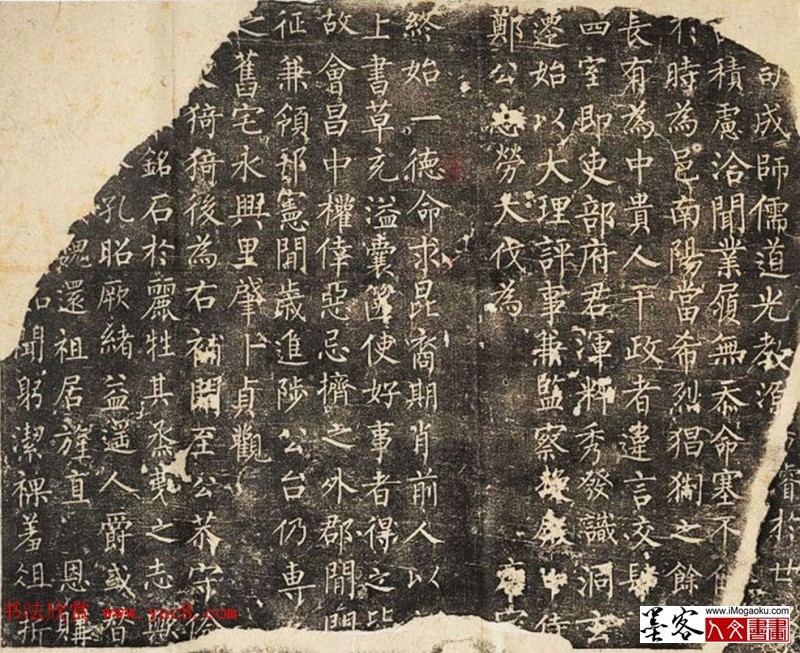 成師儒道光教源 於世
積慮洽聞業履無忝命塞不
於時為邑南陽當希烈猖獗之餘
長有為中貴人干政者違言交
四室即吏部府君渾粹秀發識洞玄
遷始以大理評事兼監察 中侍
鄭公忠勞大伐為
終始一德命求昆裔期肖前人以
上書草充溢囊篋使好事者得之
故會昌中權倖惡忌擠之外郡間
征兼領邦憲間歲進陟公台仍專
之舊宅永興里肇卜貞觀
猗猗後為右補闕至公恭守
銘石於麗牲其烝 之志歟
孔昭厥緒益 人爵或
還祖居旌直 恩購
聞躬潔裸羞俎折
书法欣赏 www.yac8.com
www.iMogaoku.com
墨客 人文書畫